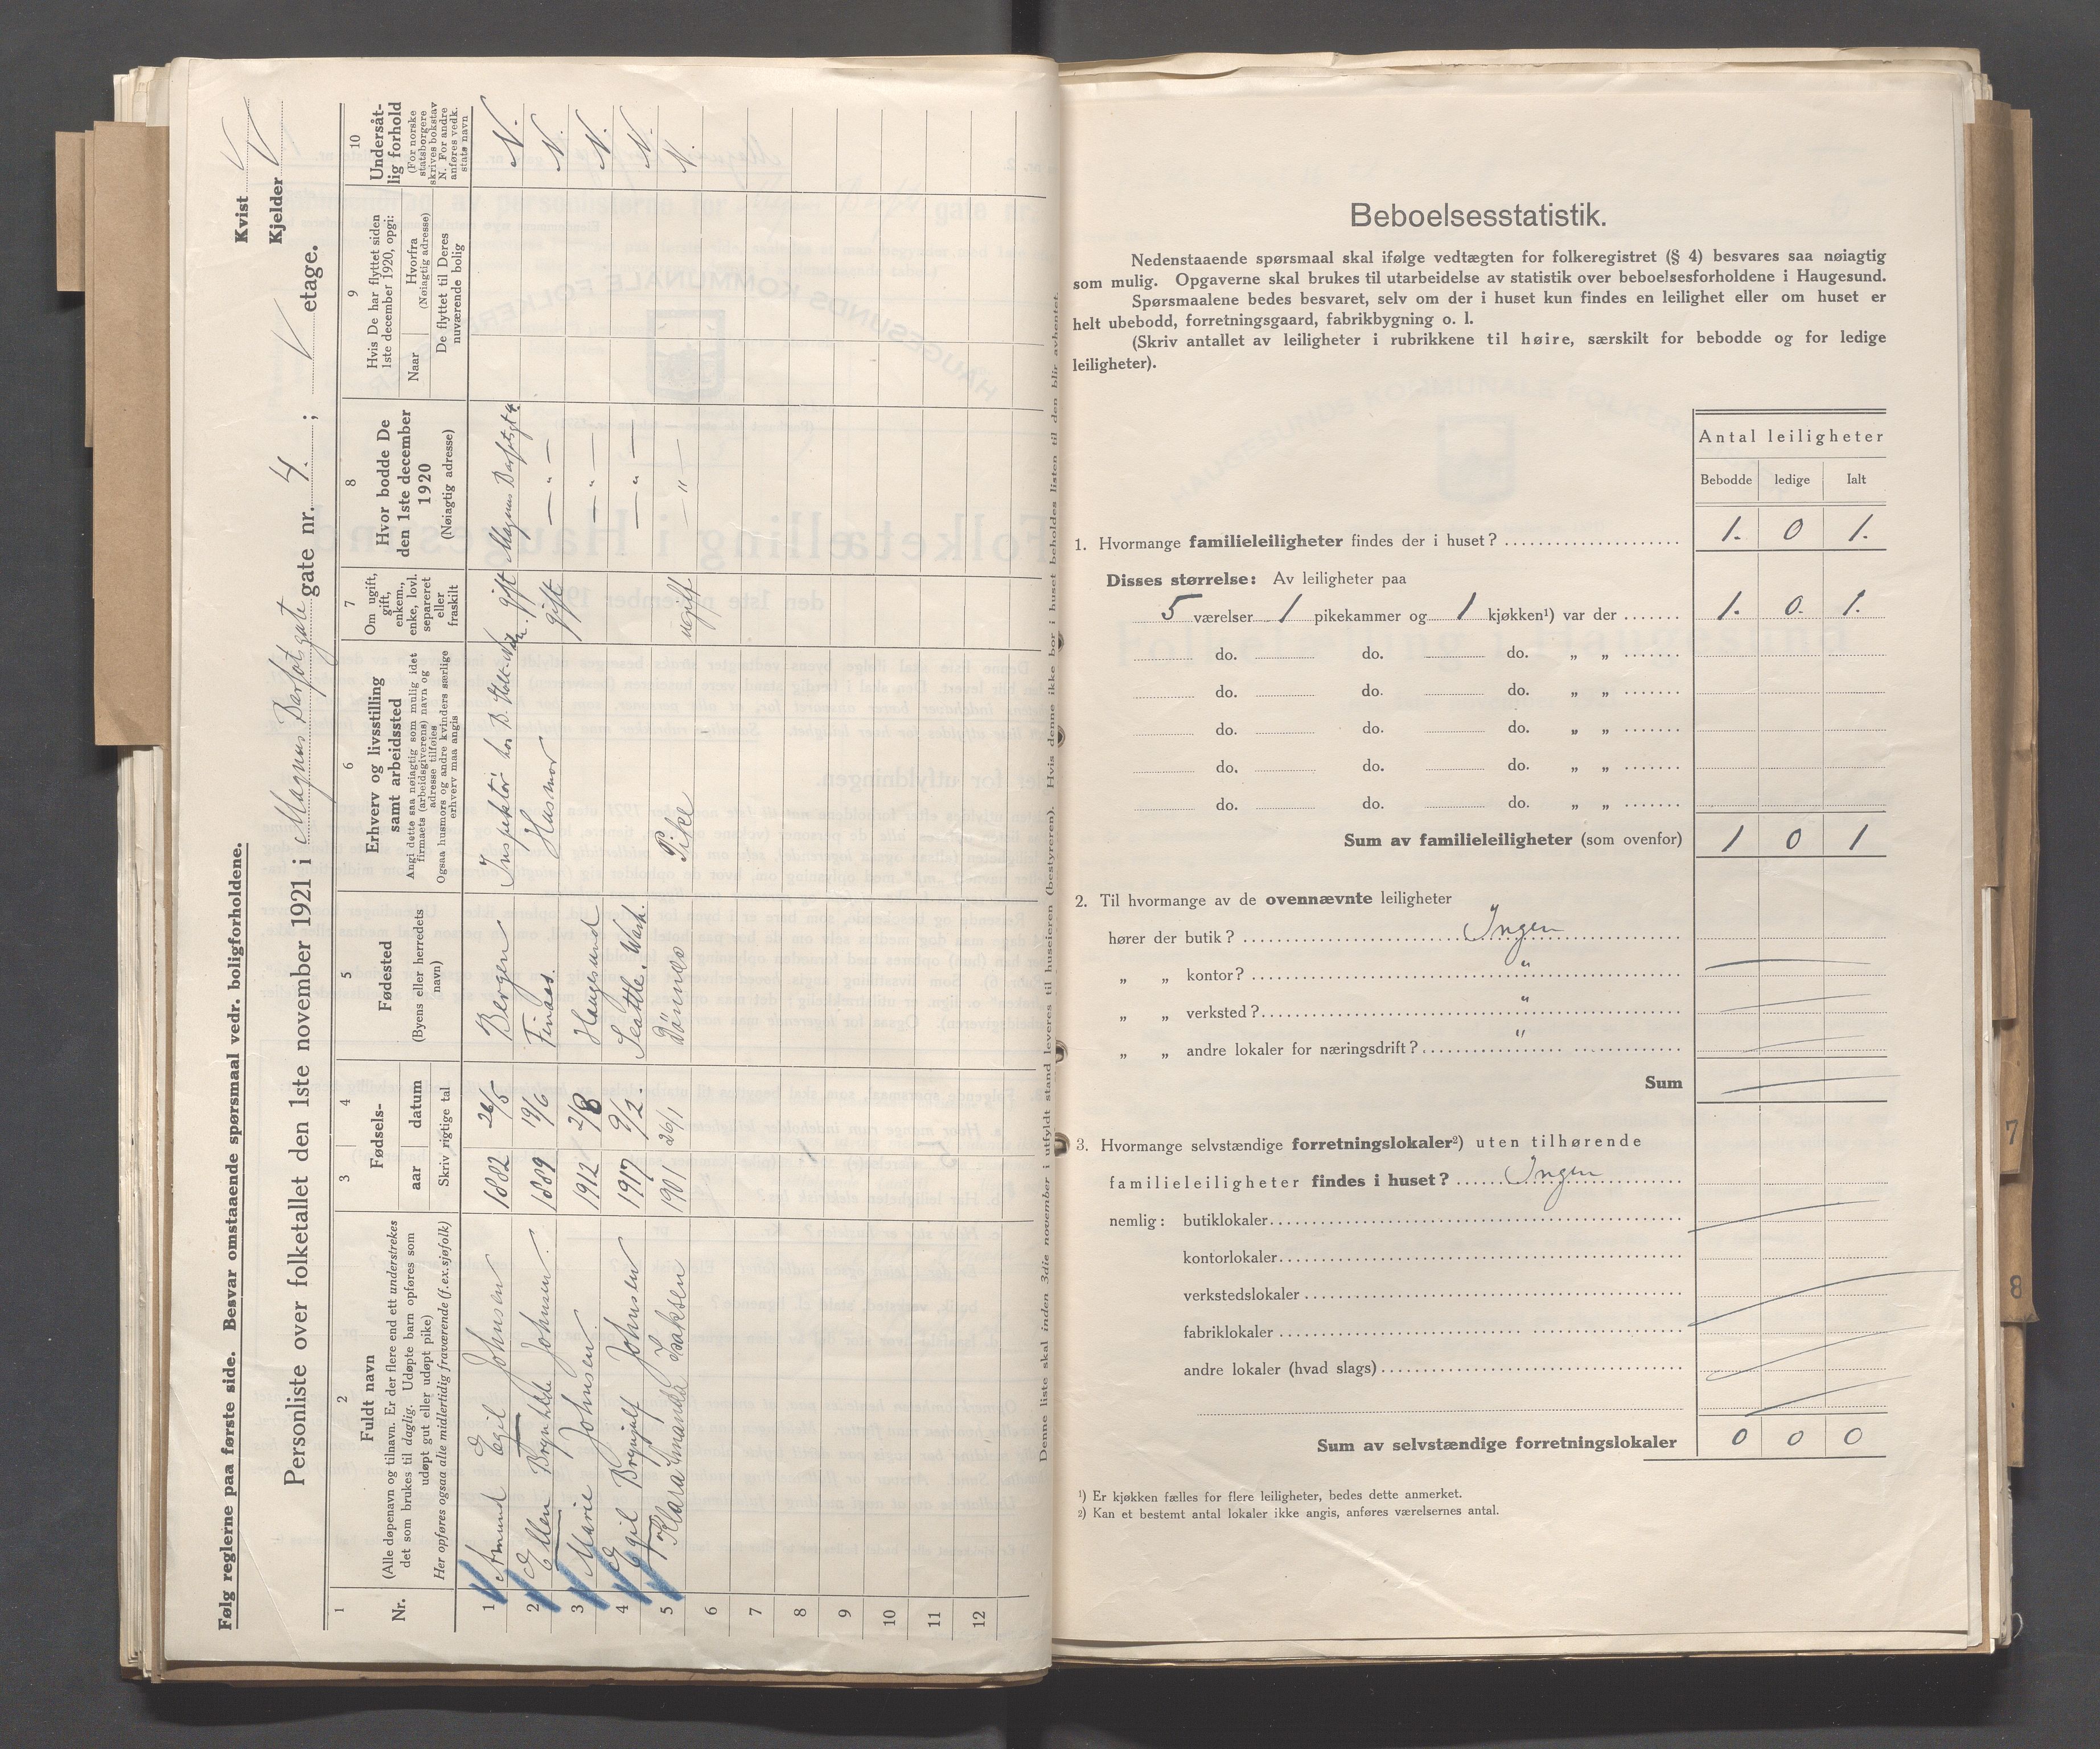 Følg reglerne paa første side. Besvar omstaaende spørsmaal vedr. boligforholdene.
Kvist V
Kjelder V
Personliste over folketallet den 1ste november 1921 i Magnus Barfotsgate gate nr. 4. ; V etage.
1
Nr.
2
Fuldt navn
(Alle døpenavn og tilnavn. Er der flere end ett understrekes
det som brukes til daglig. Udøpte barn opføres som
udøpt gut eller udøpt pike)
Her opføres ogsaa alle midlertidig fraværende (f.ex. sjøfolk)
3 4
Fødsels-
aar datum
Skriv rigtige tal
5
Fødested
(Byens eller herredets
navn)
6
Erhverv og livsstilling
samt arbeidssted
Angi dette saa nøiagtig som mulig idet
firmaets (arbeidsgiverens) navn og
adresse tilføies
Ogsaa husmors og andre kvinders særlige
erhverv maa angis
7
Om ugift,
gift,
enkem.,
enke, lovl.
separeret
eller
fraskilt
8
Hvor bodde De
den 1ste december
1920
(Nøiagtig adresse)
9
Hvis De har flyttet siden
1ste december 1920, opgi:
Naar
Hvorfra
(Nøiagtig adresse)
De flyttet til Deres
nuværende bolig
10
Undersåt-
lig forhold
(For norske
statsborgere
skrives bokstav
N. For andre
anføres vedk.
stats navn
1 Amund Egil Johnsen 1882 26/5 Bergen Inspektør hos B. gift Magnus Barfotsgt 4 N.
2 Ellen Brynhilde Johnsen. 1889 19/6 Finaas. Husmor gift — " — N.
3 Marie Johnsen. 1912 2/8 Haugesund — " — N.
4 Egil Brynjulf Johnsen 1917 9/2. Seattle. Wash. — " — N.
5 Klara Amanda Isaksen 1901 26/1 Dönnes Pike ugift — " — N.
6
7
8
9
10
11
12
Denne liste skal inden 3die november i utfyldt stand leveres til huseieren (bestyreren). Hvis denne ikke bor i huset beholdes listen til den blir avhentet.
Beboelsesstatistik.
Nedenstaaende spørsmaal skal ifølge vedtægten for folkeregistret (§ 4) besvares saa nøiagtig
som mulig. Opgaverne skal brukes til utarbeidelse av statistik over beboelsesforholdene i Haugesund.
Spørsmaalene bedes besvaret, selv om der i huset kun findes en leilighet eller om huset er
helt ubebodd, forretningsgaard, fabrikbygning o. l.
(Skriv antallet av leiligheter i rubrikkene til høire, særskilt for bebodde og for ledige
leiligheter).
Antal leiligheter
Bebodde ledige Ialt
1. Hvormange familieleiligheter findes der i huset? 1. 0 1.
Disses størrelse: Av leiligheter paa
5 værelser 1 pikekammer og 1 kjøkken¹) var der 1. 0. 1.
do. do. do. „ „
do. do. do. „ „
do. do. do. „ „
do. do. do. „ „
do. do. do. „ „
Sum av familieleiligheter (som ovenfor) 1 0 1
2. Til hvormange av de ovennævnte leiligheter
hører der butik? Ingen
„ „ kontor? "
„ „ verksted? "
„ „ andre lokaler for næringsdrift? "
Sum
3. Hvormange selvstændige forretningslokaler²) uten tilhørende
familieleiligheter findes i huset? Ingen
nemlig: butiklokaler
kontorlokaler
verkstedslokaler
fabriklokaler
andre lokaler (hvad slags)
Sum av selvstændige forretningslokaler 0 0 0
¹) Er kjøkken fælles for flere leiligheter, bedes dette anmerket.
²) Kan et bestemt antal lokaler ikke angis, anføres værelsernes antal.
7
8